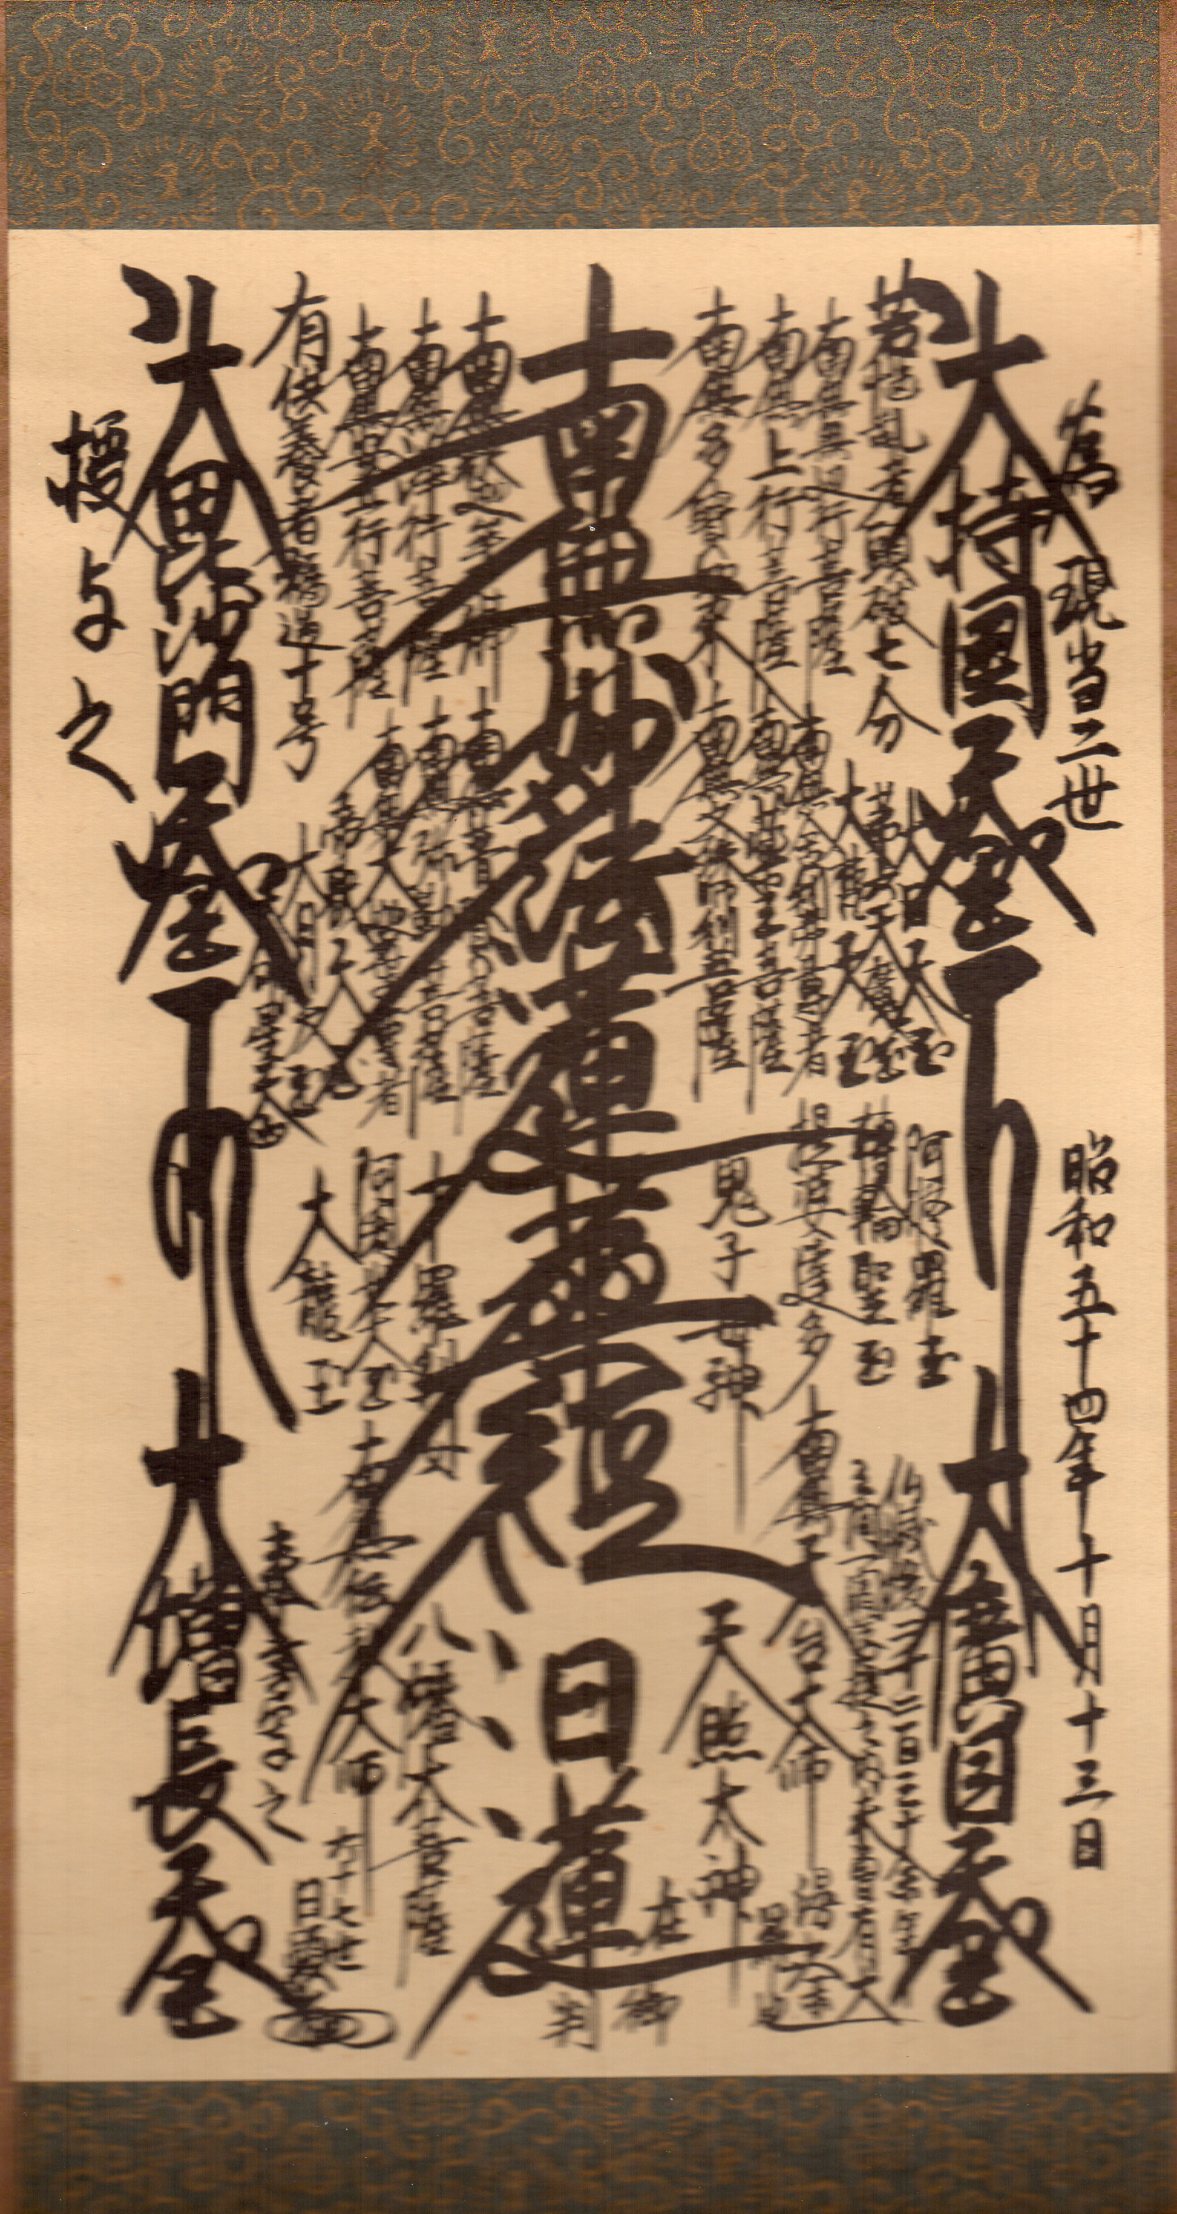 為 現当二世
昭和五十四年十月十三日
大持国天王
大廣目天王
若悩乱者頭破七分
南無無辺行菩薩
南無上行菩薩
南無多宝如来
大日天王
第六天魔王
大龍天王
南無舎利弗尊者
南無薬王菩薩
南無文殊師利菩薩
阿修羅王
転輪聖王
提婆達多
鬼子母神
仏滅後二千二百三十余年
之間一閻浮提之内未曾有大
漫荼羅也
南無天台大師
天照太神
南無妙法蓮華経
日蓮
在
御
判
南無釈迦牟尼仏
南無浄行菩薩
南無安立行菩薩
有供養者福過十号
南無普賢菩薩
南無弥勒菩薩
南無大迦葉尊者
帝釈天王
大月天王
十羅刹女
阿闍世大王
大龍王
南無伝教大師
八幡大菩薩
奉書写之
六十七世
日顕
大毘沙門天王
大増長天王
授与之